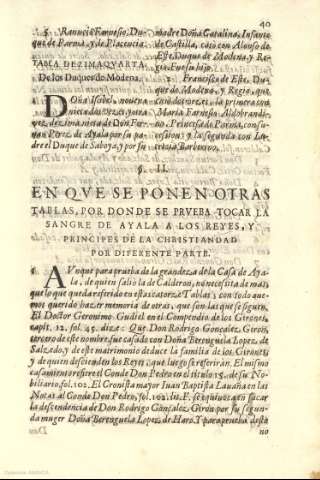 40
5. Ranucio Farnesio, Du-
que de Parma, y de Placencia.
TABLA DEZIMAQVARTA.
De los Duques de Modena.
1. DOña Isabel, nouena
nieta de
dre el Duque de Saboya, y por su
madre Doña Catalina, Infante
de Castilla, casò con Alonso de
Este, Duque de Modena, y Re-
gio. Fue su hijo.
2. Francisco de Este, Du-
que de Modena, y Regio, que
casò dos vezes: la primera con
Maria Farnesia Aldobrandi-
na, Princesa de Parma, con su-
cession: y la segunda con Lu-
crecia Barberino.
§. II.
EN QVE SE PONEN OTRAS
TABLAS, POR DONDE SE PRVEBA TOCAR LA
SANGRE DE AYALA A LOS REYES, Y
PRINCIPES DE LA CHRISTIANDAD
POR DIFERENTE PARTE.
1. AVnque para prueba de la grandeza de la Casa de Aya-
la, de quien saliò la de Calderon, no necesita de mas,
que lo que queda referido en estas catorze Tablas; con todo que-
mos querido hazer memoria de otras, que son las que se siguen.
El Doctor Geronimo Gudiel en el Compendio de los Girones,
capit. 12. fol. 45. dize: Que Don Rodrigo Gonçalez Giron,
tercero de este nombre, fue casado con Doña Berenguela Lopez de
Salzedo, y de este matrimonio deduce la familia de los Girones,
y de quien descienden los Reyes, que luego se referiràn. El mismo
casamiento refiere el Conde Don Pedro en el titulo 15. de su No-
biliario, fol. 102. El Cronista mayor Iuan Baptista Lauaña en las
Notas al Conde Don Pedro, fol. 102. lit. F. se equiuoca en sacar
la descendencia de Don Rodrigo Gonçalez Giron por su segun-
da muger Doña Berenguela Lopez de Haro. Y para prueba desta
no